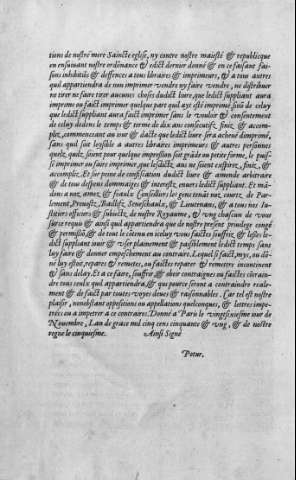 tions de nostre mere Saincte eglise, ny contre nostre maiesté & republique
en ensuivant nostre ordinance & edict dernier donné & en ce faisant fai-
sons inhibitiõs & deffences a tous libraires & imprimeurs, & a tous autres
qu'il appartiendra de non imprimer vendre ny faire vendre, ne distribuer
ne tirer ne faire tirer aucunes choses dudict livre, que ledict suppliant aura
imprimé ou faict imprimer quelque part quil ayt esté imprimé sinō de celuy
que ledict suppliant aura faict imprimer sans le vouloir & consentement
de celuy dedens le temps & terme de dix ans consecutifz, finiz, & accom-
pliz, commencant au iour & dacte que ledict livre sera achevé dimprimé,
sans quil soit loysible a autres libraires imprimeurs & autres personnes
quelz, quilz, soient pour quelque impression soit grāde ou petite forme, le puis-
se imprimer ou faire imprimer, que lesdictz, ans ne soient expirez, finiz, &
accompliz, Et sur peine de confiscation dudict livre & amende arbitraire
& de tous despens dommaiges & interestz, envers ledict suppliant. Et mā-
dons a noz, amez, & feaulx Conseilliers les gens tenāt noz, cours, de Par-
lement, Prevostz, Baillifz, Seneschaulx, & Lieutenans, & a tous noz Iu-
sticiers officiers & subiectz, de nostre Royaume, & ung chascun de vous
sur ce requis & ainsi quil appartiendra que de nostre present privilege congé
& permissiō, & de tout le côtenu en iceluy vous faictes souffriz, & lesses le-
dict suppliant iouir & user plainement & paisiblement ledict temps sans
luy faire & donner empeschement au contraire. Lequel si faict, mys, ou dō-
né luy estoit, reparez & remettez, ou faictes reparer & remettre incontinent
& sans delay. Et a ce faire, souffrir & obeir contraignez ou faictes cōtrain-
dre tous ceulx quil appartiendra, & que pource seront a contraindre reale-
ment & de faict par toutes voyes deues & raisonnables. Car tel est nostre
plaisir, nonobstant oppositions ou appellations quelconques, & lettres impe-
trées ou a impetrer a ce contraires. Donné a Paris le vingtsixiesme iour de
Novembre, Lan de grace mil cinq cens cinquante & ung, & de nostre
regne le cinquiesme. Ainsi Signé
Potur.